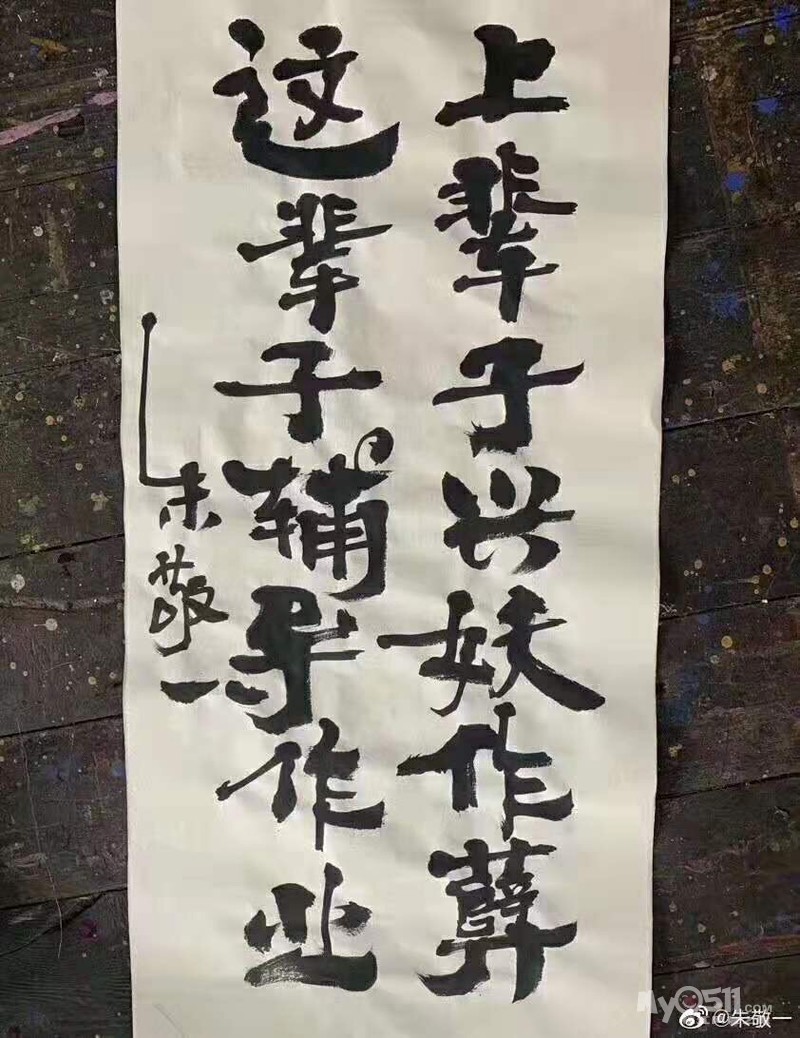 上辈子兴妖作孽
这辈子辅导作业
朱敬一
My0511.COM
@朱敬一